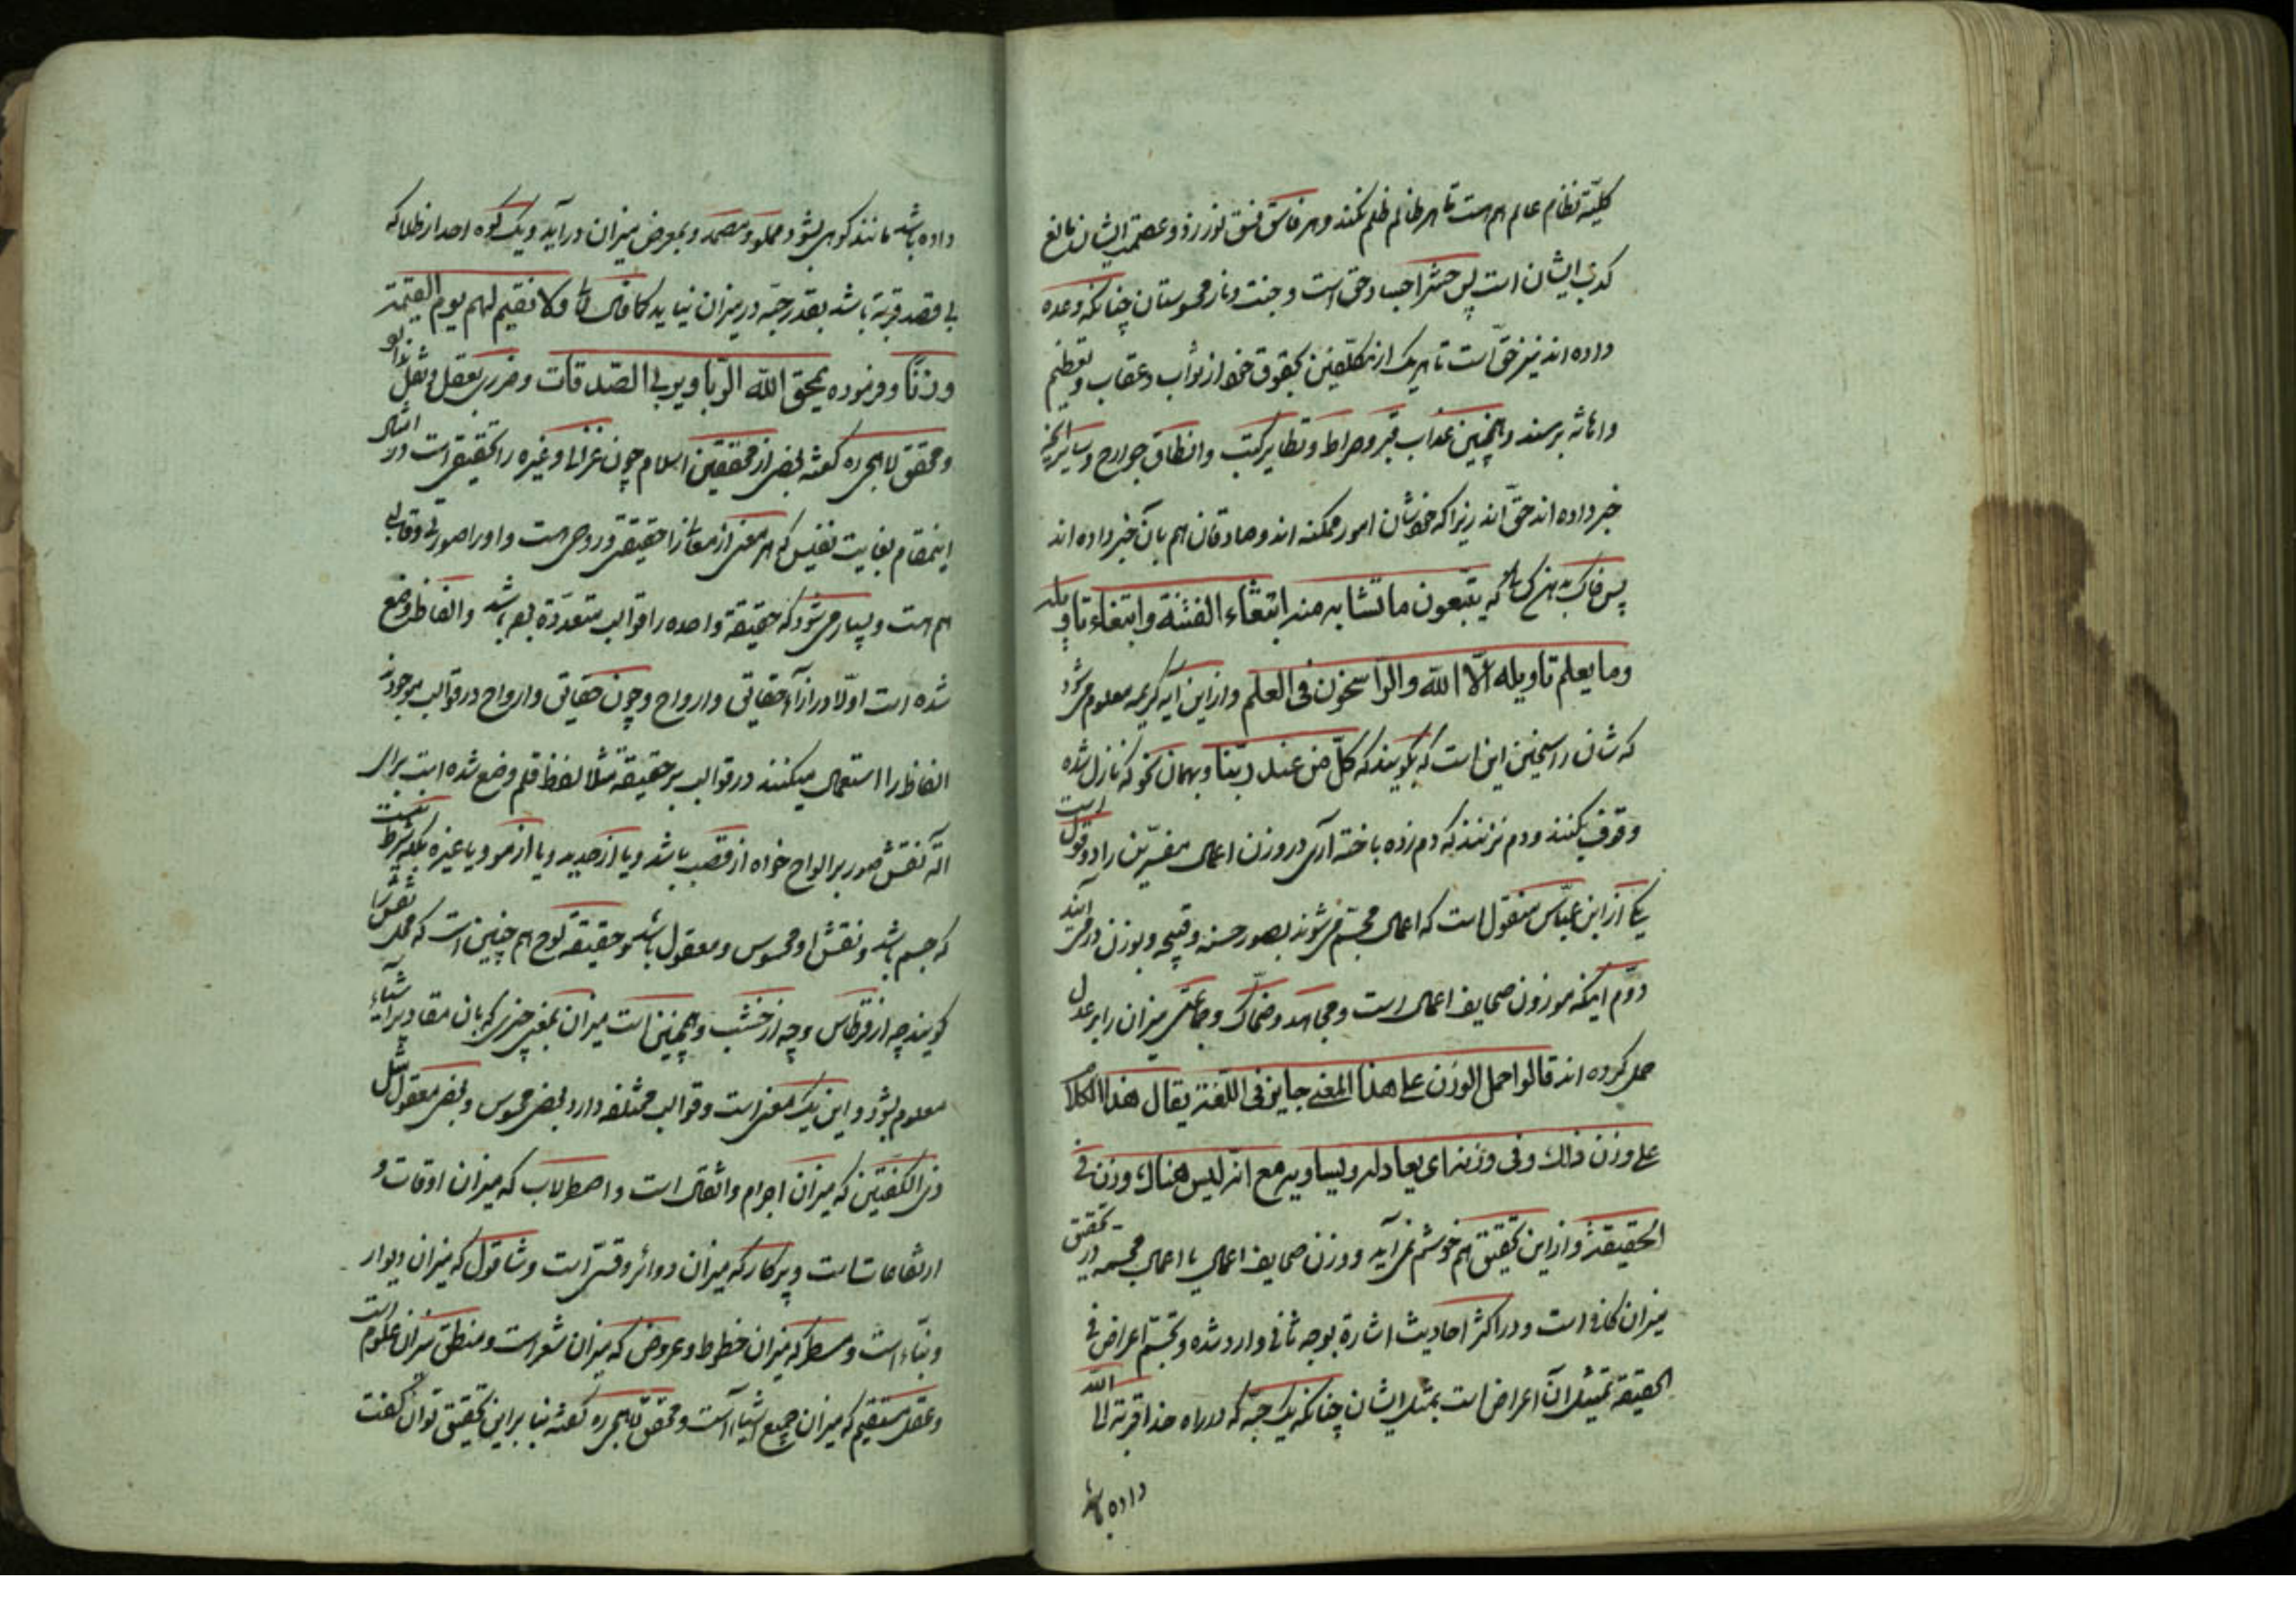 کلیّة نظام عالم هم هست تا هر ظالم ظلم نکند و هر فاسق فسق نورزد و عصمت ایشان مانع
کذب ایشان است پس حشر اجساد حق است و جنت و نار محسوستان چنانکه وعده
داده اند نیز حقّ است تا هر یک از مکلّفین بحقوق خود از ثواب و عقاب و تعظیم
و اهانه برسند و همچنین عذاب قبر و صراط و تطایر کتب و انطاق جوارح و سایر آنچه
خبر داده اند حقّ اند زیرا که خودشان امور ممکنه اند و صادقان هم بآن خبر داده اند
پس که یتّبعون ما تشابه منه ابتغاء الفتنة وابتغاء تاویله
وما یعلم تاویله الّا الله والرّاسخون فی العلم و از این آیه کریمه معلوم می شود
که شان راسخین این است که بگویند که کلّ من عند ربّنا و بهمان نحو که نازل شده است
وقوف بکنند و دم نزنند که دم زده باخته آری در وزن اعمال مفسّرین را دو قول
یکی از ابن عبّاس منقول است که اعمال مجسّم می شوند بصور حسنه و قبیحه و بوزن در می آیند
دوّم اینکه موزون صحایف اعمال است و مجاهد و ضحّاک و جماعتی میزان را بر عدل
حمل کرده اند قالوا حمل الوزن علی هذا المعنی جایز فی اللّغة یقال هذا الکلام
علی وزن ذلک وفی وزنه ای یعادله ویساویه مع انّه لیس هناک وزن فی
الحقیقة و از این تحقیق هم خوشم نمی آید و وزن صحایف اعمال یا اعمال مجسمه در تحقق
میزان کافی است و در اکثر احادیث اشارة بوجه ثانی وارد شده و تجسّم اعراض فی
الحقیقة تمثیل آن اعراض است بمثل ایشان چنانکه یک حبّه که در راه خدا قربة الی الله
داده باشد
داده باشد مانند کوهی بشود و مملو و بمعرض میزان در آید و یک کوه احد از طلا که
بی قصد قربة باشد بقدر حبّه در میزان نیاید کما قال تعالی ولا نقیم لهم یوم القیمة
وزنًا و فرموده یمحق الله الرّبا ویربی الصّدقات
و محقق لاهجی ره گفته بعضی از محققین اسلام چون غزالی و غیره را تحقیقی است در امثال
اینمقام بغایت نفیس که هر معنی از معانی را حقیقتی و روحی هست و او را صورتی و قالبی
هم هست و بسیار می شود که حقیقة واحده را قوالب متعدّدة بوده باشد و الفاظ وضع
شده است اوّلا در ازاء حقایق و ارواح و چون حقایق و ارواح در قوالب موجودند
الفاظ را استعمال میکنند در قوالب بر حقیقة مثلا لفظ قلم وضع شده است برای
آلة نقش صور بر الواح خواه از قصب باشد و یا از حدید و یا از مو و یا غیره بلکه شرط نیست
که جسم باشد و نقش او محسوس و معقول باشد و حقیقة لوح هم چنین است که محل نقش را
گویند چه از قرطاس و چه از خشب و همچنین است میزان بمعنی چیزی که بآن مقادیر اشیاء
معلوم بشود و این یک معنی است و قوالب مختلفه دارد بعضی محسوس و بعضی معقول مثل
ذی الکفتین که میزان اجرام و اثقال است و اصطرلاب که میزان اوقات و
ارتفاعات است و پرکار که میزان دوائر و قسیّ است و شاقول که میزان دیوار
و بنّاء است و مسطر که میزان خطوط و عروض که میزان شعر است و منطق میزان علوم است
و عقل مستقیم که میزان جمیع اشیاء است و محقق لاهجی ره گفته بنا بر این تحقیق توان گفت